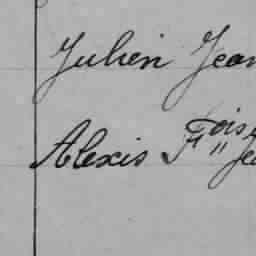 Julien Jean
Alexis Fois Je